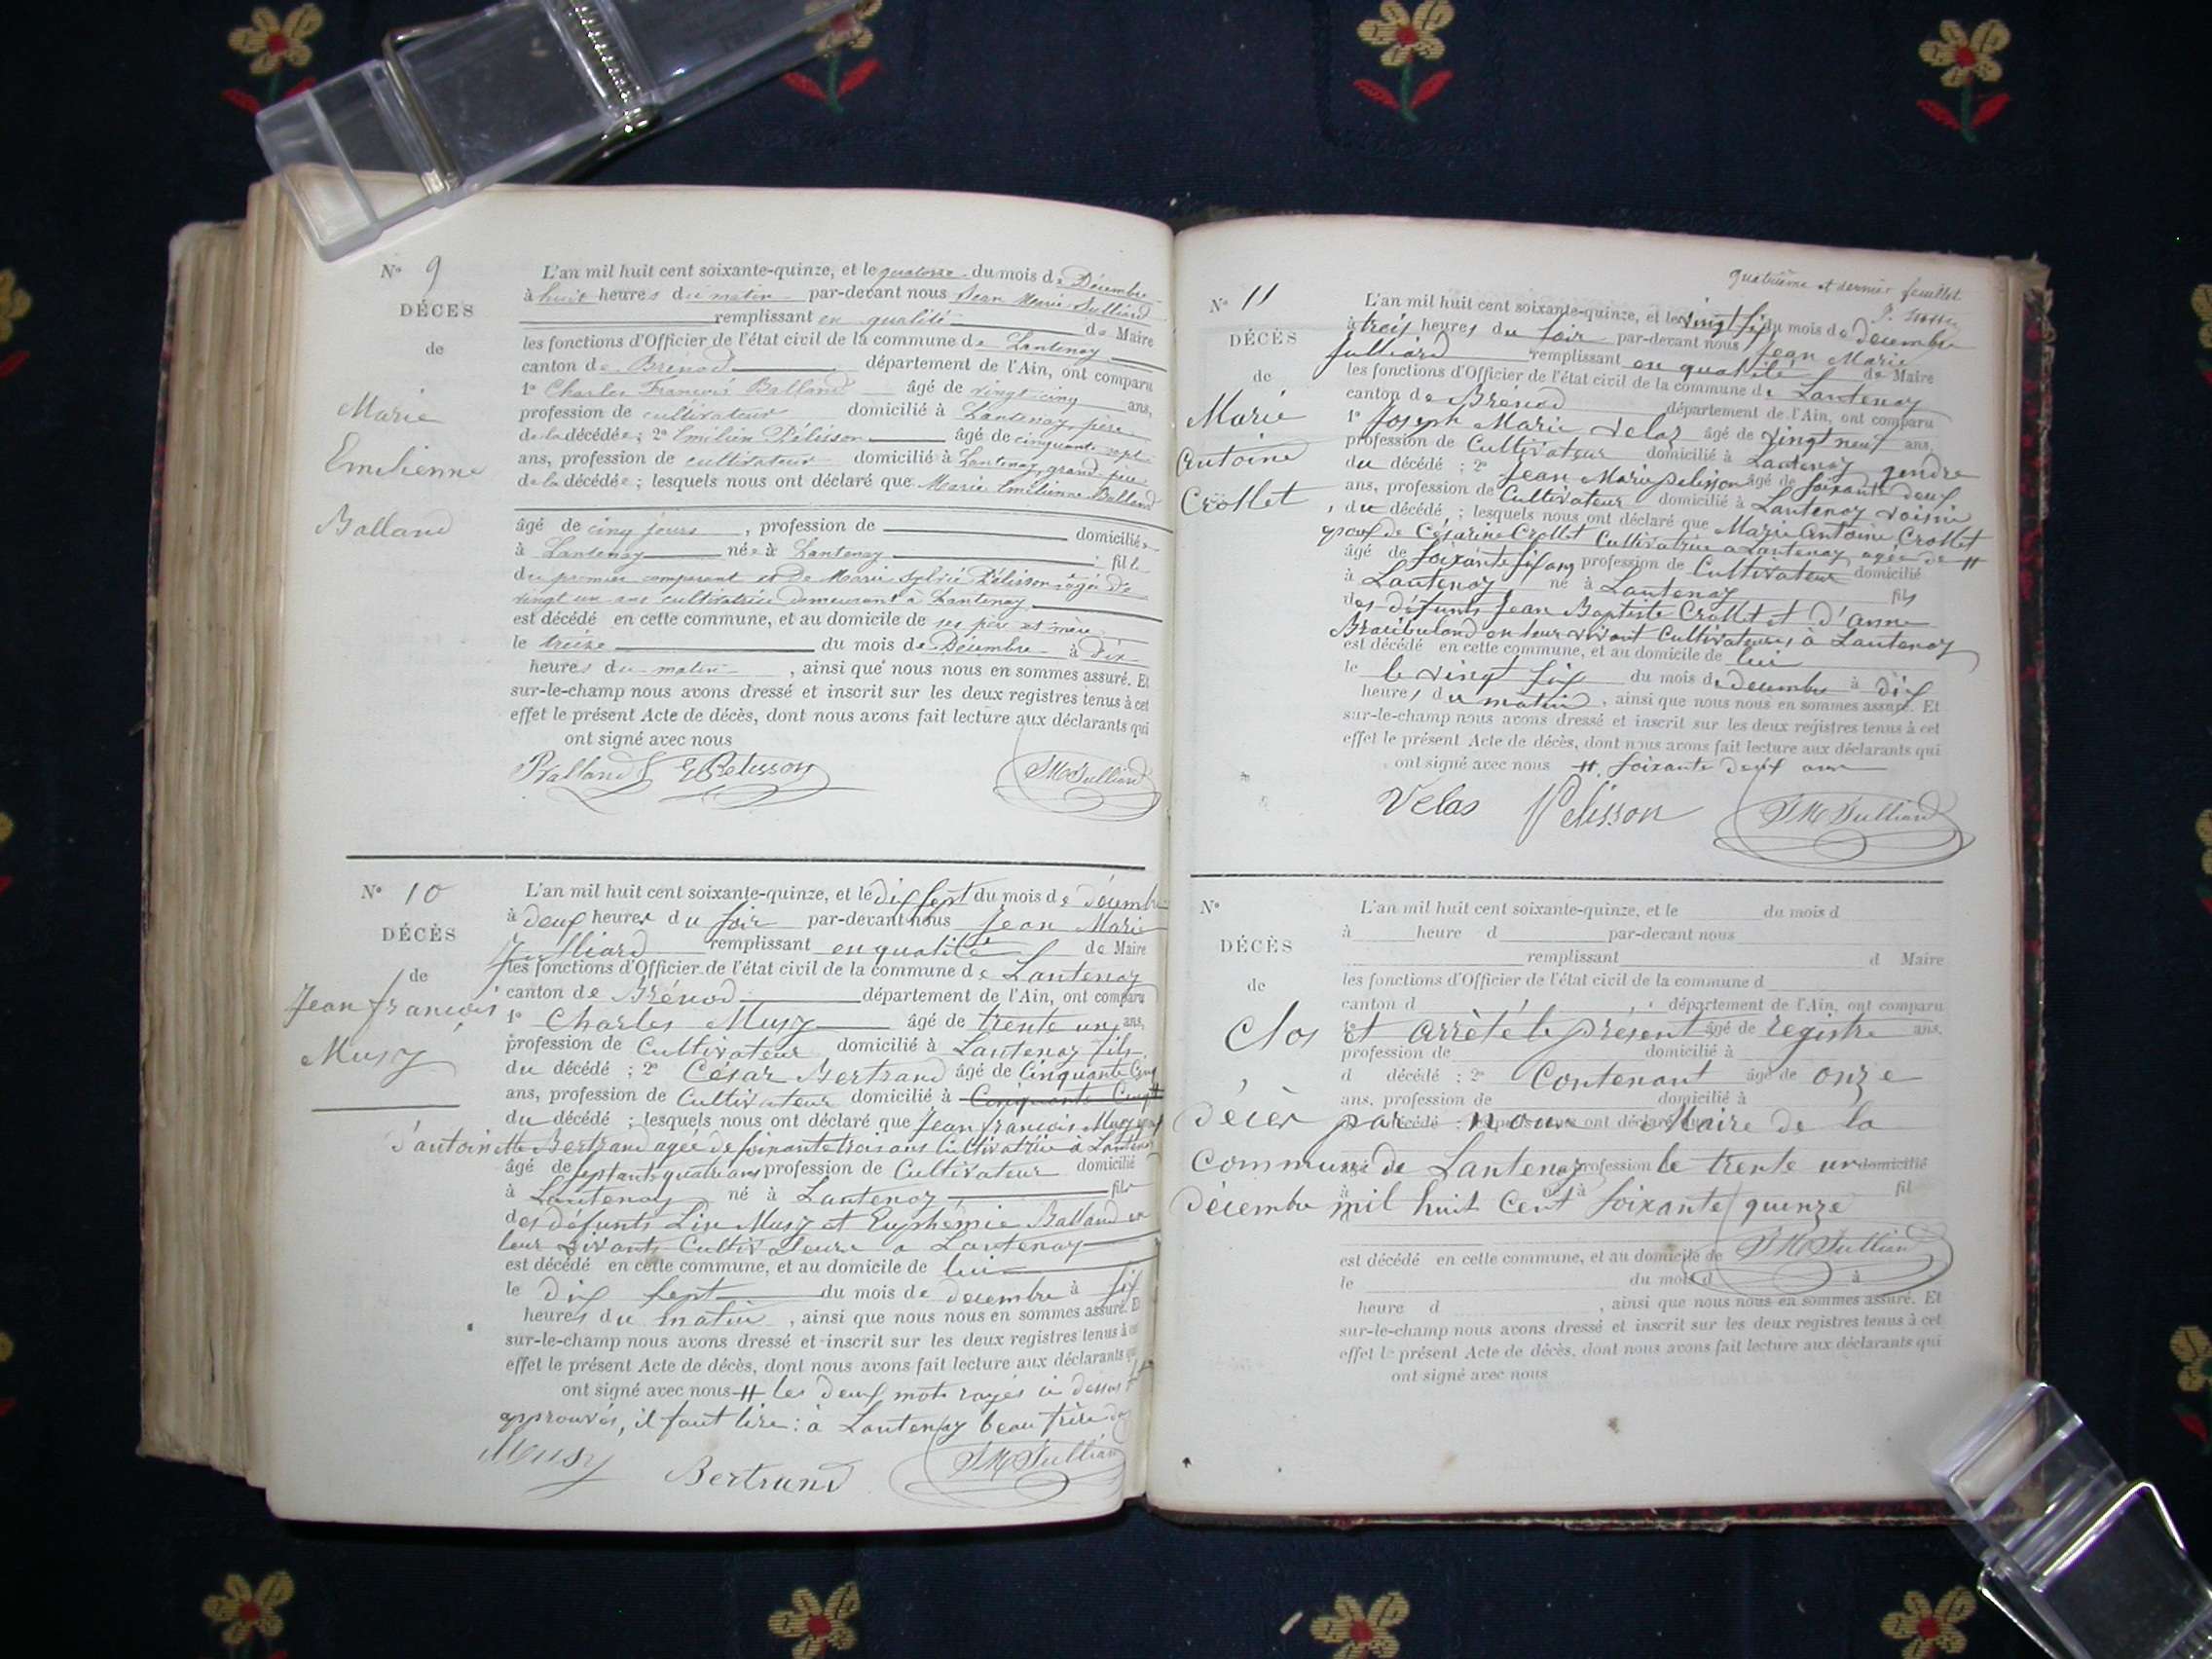 N° 9
DÉCES
de
Marie
Emilienne
Balland
L'an mil huit cent soixante-quinze, et le quatorze du mois de Décembre
à huit heures du matin par-devant nous Jean Marie Julliard
remplissant en qualité de Maire
les fonctions d'Officier de l'état civil de la commune de Lantenay
canton de Brénod département de l'Ain, ont comparu
1° Charles François Balland âgé de vingt cinq ans,
profession de cultivateur domicilié à Lantenay, père
de la décédée; 2° Emilien Pélisson âgé de cinquante sept
ans, profession de cultivateur domicilié à Lantenay, grand père
de la décédée; lesquels nous ont déclaré que Marie Emilienne Balland
âgé de cinq jours, profession de domiciliée
à Lantenay née à Lantenay fille
du premier comparant et de Marie Sylvie Pélisson âgée de
vingt un ans cultivatrice demeurant à Lantenay
est décédé en cette commune, et au domicile de ses père et mère
le treize du mois de Décembre à dix
heures du matin, ainsi que nous nous en sommes assuré. Et
sur-le-champ nous avons dressé et inscrit sur les deux registres tenus à cet
effet le présent Acte de décès, dont nous avons fait lecture aux déclarants qui
ont signé avec nous
Balland E Pelisson JM Julliard
N° 10
DÉCÈS
de
Jean francois
Musy
L'an mil huit cent soixante-quinze, et le dix sept du mois de décembre
à deux heures du soir par-devant nous Jean Marie
Julliard remplissant en qualité de Maire
les fonctions d'Officier de l'état civil de la commune de Lantenay
canton de Brénod département de l'Ain, ont comparu
1° Charles Musy âgé de trente un ans,
profession de Cultivateur domicilié à Lantenay fils
du décédé; 2° César Bertrand âgé de Cinquante Cinq
ans, profession de Cultivateur domicilié à Cinquante Cinq #
du décédé; lesquels nous ont déclaré que Jean francois Musy
d'antoinette Bertrand agée de soixante trois ans Cultivatrice à Lantenay
âgé de septante quatre ans profession de Cultivateur domicilié
à Lantenay né à Lantenay fils
des défunts Lin Musy et Euphémie Balland en
leur vivant Cultivateurs a Lantenay
est décédé en cette commune, et au domicile de lui
le dix sept du mois de decembre à six
heures du matin, ainsi que nous nous en sommes assuré. Et
sur-le-champ nous avons dressé et inscrit sur les deux registres tenus à cet
effet le présent Acte de décès, dont nous avons fait lecture aux déclarants qui
ont signé avec nous # les deux mots rayés ci dessus
approuvés, il faut lire: à Lantenay beau frère du
Musy Bertrand JM Julliard
quatrième et dernier feuillet
N° 11
DÉCÈS
de
Marie
Antoine
Crollet
L'an mil huit cent soixante-quinze, et le vingt six du mois de decembre
à trois heures du soir par-devant nous Jean Marie
Julliard remplissant en qualité de Maire
les fonctions d'Officier de l'état civil de la commune de Lantenay
canton de Brénod département de l'Ain, ont comparu
1° Joseph Marie Velas âgé de vingt neuf ans,
profession de Cultivateur domicilié à Lantenay gendre
du décédé; 2° Jean Marie pelisson âgé de soixante deux
ans, profession de Cultivateur domicilié à Lantenay voisin
du décédé; lesquels nous ont déclaré que Marie Antoine Crollet
epoux de Césarine Crollet Cultivatrice a Lantenay agée de #
âgé de soixante six ans profession de Cultivateur domicilié
à Lantenay né à Lantenay fils
des défunts Jean Baptiste Crollet et d'anne
en leur vivant Cultivateurs à Lantenay
est décédé en cette commune, et au domicile de lui
le le vingt six du mois de decembre à dix
heures du matin, ainsi que nous nous en sommes assuré. Et
sur-le-champ nous avons dressé et inscrit sur les deux registres tenus à cet
effet le présent Acte de décès, dont nous avons fait lecture aux déclarants qui
ont signé avec nous # soixante deux ans
Velas Pelisson JM Julliard
N°
DÉCÈS
de
L'an mil huit cent soixante-quinze, et le du mois d
à heure d par-devant nous
remplissant d Maire
les fonctions d'Officier de l'état civil de la commune d
canton d département de l'Ain, ont comparu
Clos et arrêté le présent âgé de registre ans.
profession de domicilié à
d décédé; 2° Contenant âgé de onze
ans, profession de domicilié à
décès par nous Maire de la
Commune de Lantenay profession le trente un domicilié
décembre mil huit Cent soixante quinze fil
JM Julliard
est décédé en cette commune, et au domicile de
le du mois d à
heure d, ainsi que nous nous en sommes assuré. Et
sur-le-champ nous avons dressé et inscrit sur les deux registres tenus à cet
effet le présent Acte de décès, dont nous avons fait lecture aux déclarants qui
ont signé avec nous